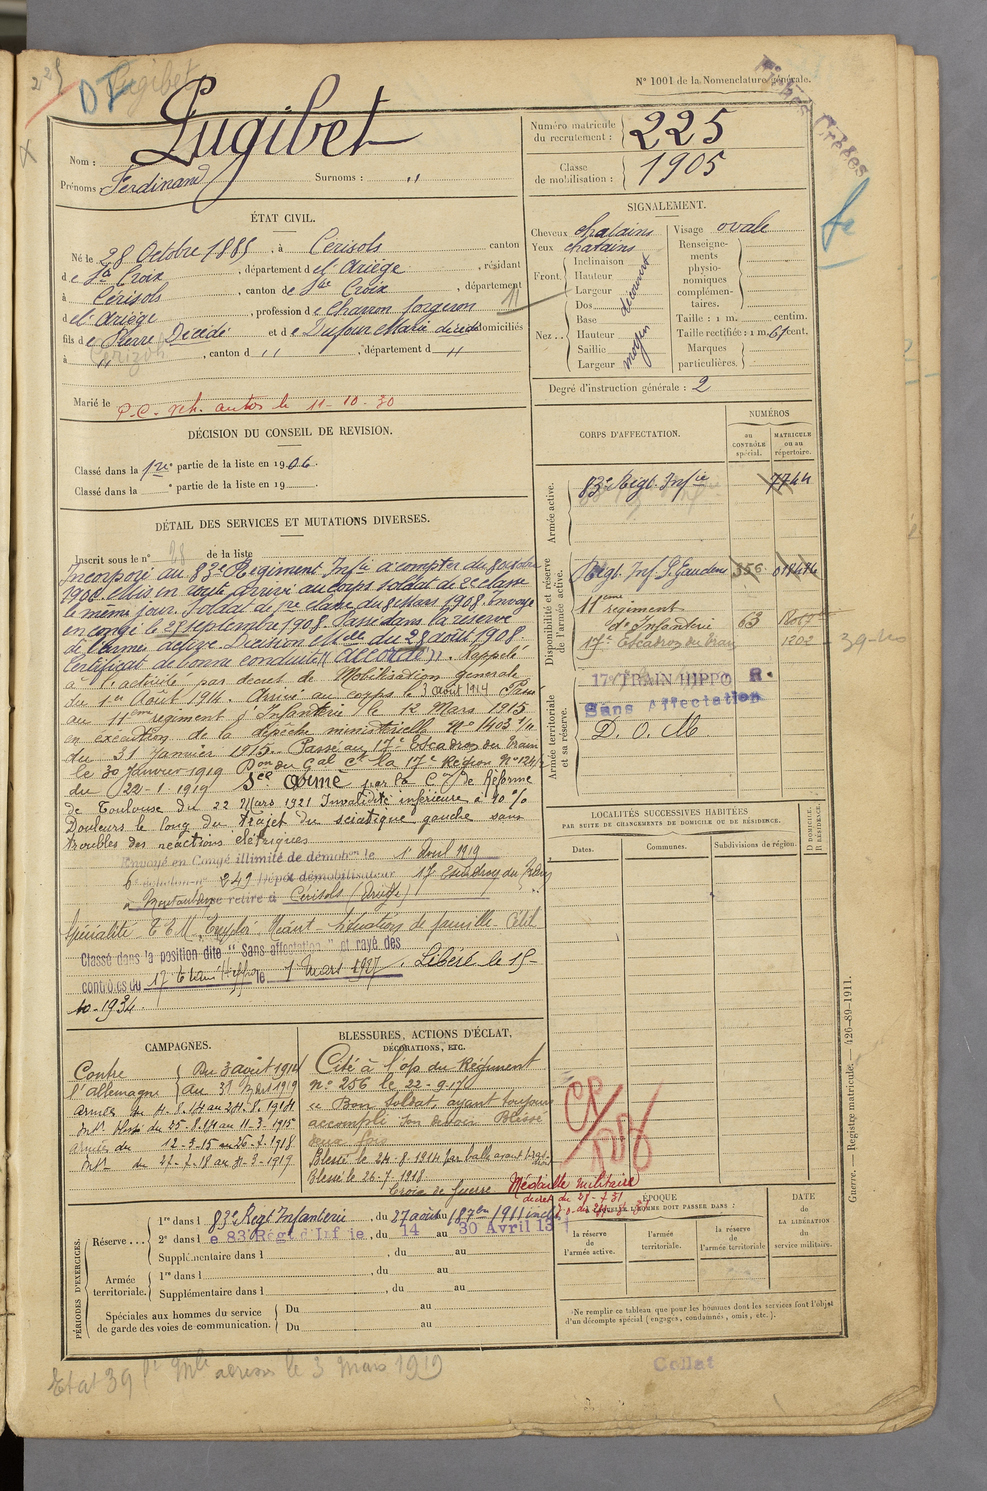 N° 1001 de la Nomenclature générale.
225
Lugibet
Fiches Créées
Nom : Lugibet
Prénoms : Ferdinand Surnoms : "
Numéro matricule du recrutement : 225
Classe de mobilisation : 1905
ÉTAT CIVIL.
Né le 28 Octobre 1885, à Cérisols canton
de Ste Croix, département de l'Ariège, résidant
à Cérisols, canton de Ste Croix, département
d el' Ariège, profession de Charron forgeron
fils de Pierre Décédé et de Dufour Marie décédée domiciliés
à ", canton d ", département d "
Marié le P.C. veh. autos le 11-10-30
SIGNALEMENT.
Cheveux chatains
Yeux chatains
Visage ovale
Front. Inclinaison
Hauteur
Largeur
découvert
Nez. Dos
Base
Hauteur
Saillie
Largeur
moyen
Renseignements physionomiques complémentaires.
Taille : 1 m. centim.
Taille rectifiée : 1 m. 61 cent.
Marques particulières.
Degré d'instruction générale : 2
DÉCISION DU CONSEIL DE REVISION.
Classé dans la 1re partie de la liste en 1906.
Classé dans la e partie de la liste en 19
DÉTAIL DES SERVICES ET MUTATIONS DIVERSES.
Inscrit sous le n° 28 de la liste
Incorporé au 83e Régiment Inftie à compter du 8 octobre
1906. Mis en route arrivé au corps soldat de 2e classe
le même jour. Soldat de 1re classe du 8 Mars 1908. Envoyé
en congé le 28 septembre 1908. Passé dans la réserve
de l'armée active. Décision Mlle du 28 août 1908.
Certificat de bonne conduite "Accordé". Rappelé
à l'activité par decret de Mobilisation generale
du 1er Août 1914. Arrivé au corps le 3 août 1914 Passé
au 11eme regiment d'Infanterie le 12 Mars 1915
en exécution de la dépêche ministérielle N° 1403
du 31 Janvier 1915. Passé au 17e Escadron du Train
le 30 Janvier 1919 Don du Gal Ct la 17e Région
du 22-1-1919 Sce Armé par la Con de Réforme
de Toulouse du 22 Mars 1921 Invalidité inférieure à 10 %
Douleurs le long du trajet du sciatique gauche sans
troubles des réactions életriques
Envoyé en Congé illimité de démobon le 1er Avril 1919
6e échelon n° 249 Dépôt démobilisateur 17e Escadron du Train
à Montauban se retire à Cérisols (Ariège)
Spécialité Emploi Néant Situation de famille
Classé dans la position dite "Sans affectation" et rayé des
contrôles du 17e le 1 Mars 1927. Libéré le 15-
10-1934
CORPS D'AFFECTATION.
NUMÉROS
au CONTRÔLE spécial.
MATRICULE ou au répertoire.
Armée active.
83e Régt Infie 7744
Disponibilité et réserve de l'armée active.
Régt. Inf. St Gaudens 356
11eme regiment
d'Infanterie 63
17e Escadron du Train 1202
Armée territoriale et sa réserve.
17e TRAIN HIPPO R.
Sans Affectation
D. O. M
LOCALITÉS SUCCESSIVES HABITÉES
PAR SUITE DE CHANGEMENTS DE DOMICILE OU DE RÉSIDENCE.
Dates. Communes. Subdivisions de région.
D DOMICILE.
R RÉSIDENCE.
CAMPAGNES.
Contre Du 3 août 1914
l'allemagne au 31 Mars 1919
Armées du 4-8-14 au 24-8-1914
Intr blessé du 25-8-14 au 11-3-1915
Armées du 12-3-15 au 26-7-1918
Intr du 27-7-18 au 31-3-1919
BLESSURES, ACTIONS D'ÉCLAT,
DÉCORATIONS, ETC.
Cité à l'o/s du Régiment
n° 256 le 22-9-17
" Bon Soldat, ayant toujours
accompli son devoir Blessé
deux fois
Blessé le 24-8-1914 par balle
Blessé le 26-7-1918
Croix de Guerre Médaille Militaire
decret du
PÉRIODES D'EXERCICES.
Réserve... 1re dans l 83e Régt Infanterie, du 27 août au 1911 inclus
2e dans l e 83 Régt d'Inf ie, du 14 au 30 Avril 13
Supplémentaire dans l , du au
Armée territoriale. 1re dans l , du au
Supplémentaire dans l , du au
Spéciales aux hommes du service
de garde des voies de communication. Du au
Du au
ÉPOQUE
À LAQUELLE L'HOMME DOIT PASSER DANS :
la réserve de l'armée active.
l'armée territoriale.
la réserve de l'armée territoriale
DATE DE LA LIBÉRATION du service militaire.
Ne remplir ce tableau que pour les hommes dont les services font l'objet
d'un décompte spécial (engagés, condamnés, omis, etc.).
Guerre. — Registre matricule. — 426-89-1911.
Etat 39 le 3 Mars 1919
Collat